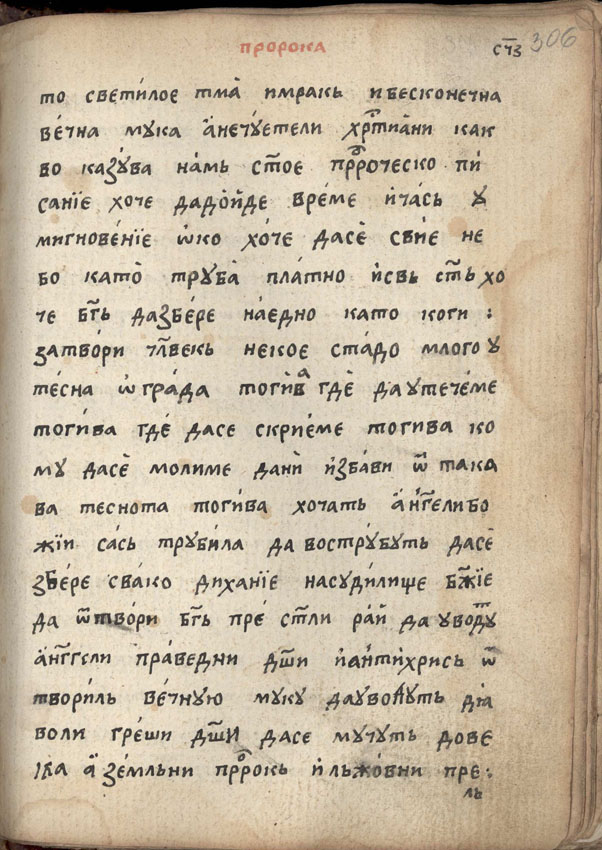 ПРОРОКА
сч҃з 306
то свети́лое тма̀ имракь ибесконечна
ве́чна мука а҆нечꙋетели хр҃тиа́ни как
во казꙋ́ва на́мь ст҃ое пр҃роческо пи́
са́нїе хоче дадо́йде вре́ме и҆ча́сь ꙋ
мигнове́нїе ѡ҆ко хо́че дасѐ свїе не
бо като̀ трꙋба̀ пла́тно и҆свь ст҃ь хо
че бг҃ь дазбе́ре нае́дно като коги :
затво́ри чл҃векь некое ста́до млого ꙋ
те́сна ѡ҆гра́да тоги́ва гдѐ даꙋтече́ме
тоги́ва где́ дасе скрие́ме тогива ко
мꙋ дасѐ молиме дани̇̀ и҆зба́ви ѿ така
ва теснота тоги́ва хочать а҆н҃гели бо
жїи сась трꙋби́ла да вострꙋ́бꙋть дасѐ
збе́ре сва́ко диха́нїе насꙋди́лище бж҃їе
да ѿтво́ри бг҃ь пре́ ст҃ли рай да ꙋводꙋт
а҆нг҃гели пра́ведни дш҃и и҆анти́хрись ѿ
твори́ль ве́чнꙋю мꙋкꙋ даꙋводꙋть дїа
воли гре́ши дш҃и дасе мꙋчꙋть дове
ка а҆ зе́мльни пр҃рокь и҆ льжо́вни пре :
ль